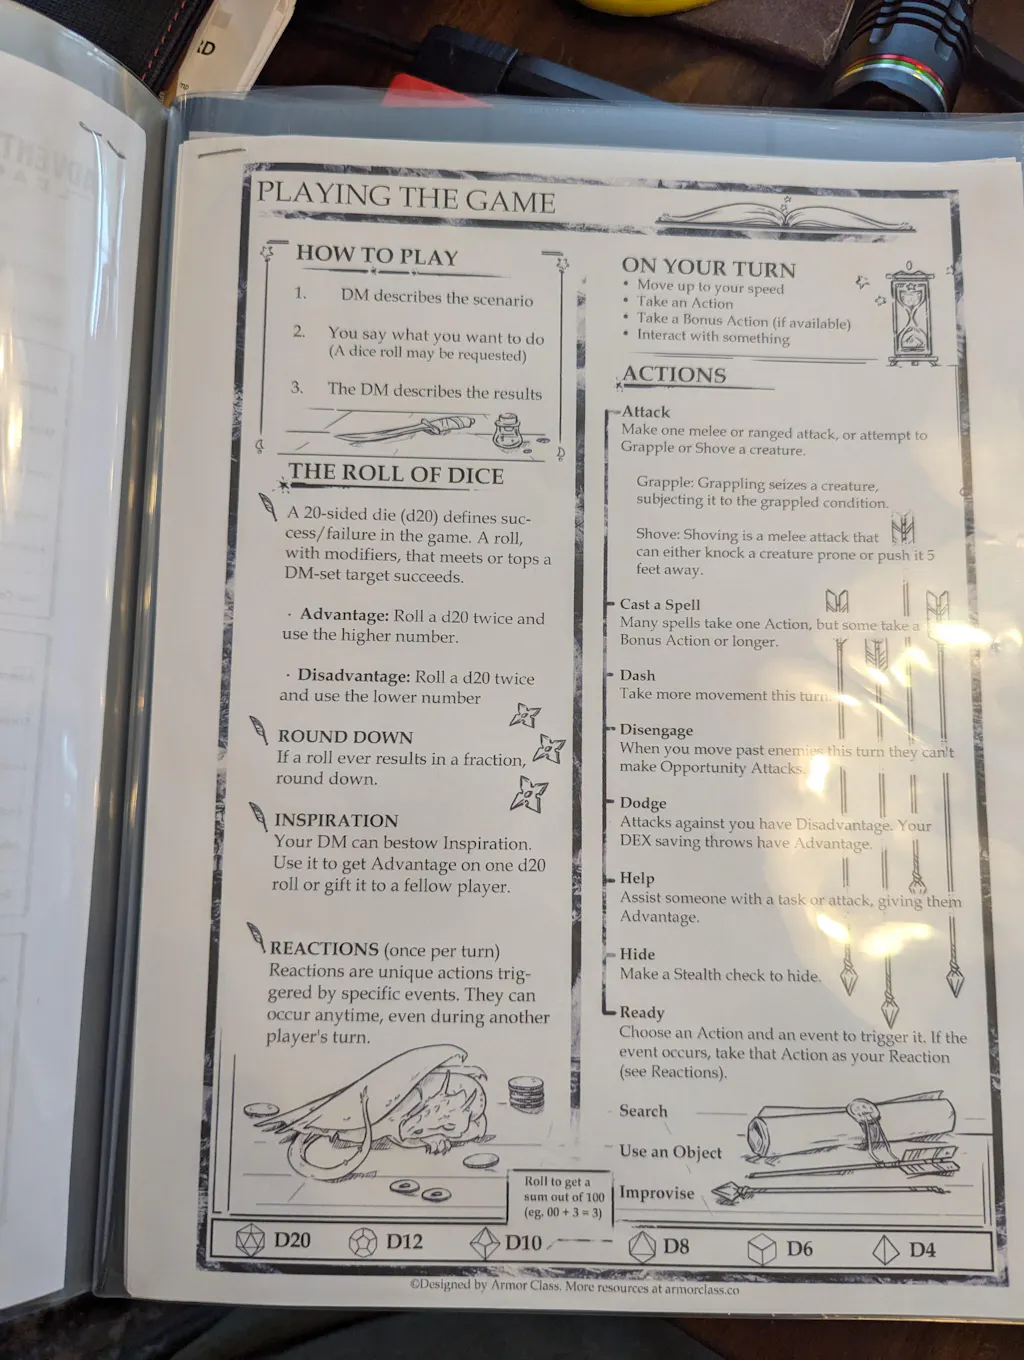 PLAYING THE GAME
HOW TO PLAY
1. DM describes the scenario
2. You say what you want to do
(A dice roll may be requested)
3. The DM describes the results
THE ROLL OF DICE
A 20-sided die (d20) defines suc-
cess/failure in the game. A roll,
with modifiers, that meets or tops a
DM-set target succeeds.
· Advantage: Roll a d20 twice and
use the higher number.
· Disadvantage: Roll a d20 twice
and use the lower number
ROUND DOWN
If a roll ever results in a fraction,
round down.
INSPIRATION
Your DM can bestow Inspiration.
Use it to get Advantage on one d20
roll or gift it to a fellow player.
REACTIONS (once per turn)
Reactions are unique actions trig-
gered by specific events. They can
occur anytime, even during another
player's turn.
ON YOUR TURN
• Move up to your speed
• Take an Action
• Take a Bonus Action (if available)
• Interact with something
ACTIONS
Attack
Make one melee or ranged attack, or attempt to
Grapple or Shove a creature.
Grapple: Grappling seizes a creature,
subjecting it to the grappled condition.
Shove: Shoving is a melee attack that
can either knock a creature prone or push it 5
feet away.
Cast a Spell
Many spells take one Action, but some take a
Bonus Action or longer.
Dash
Take more movement this turn.
Disengage
When you move past enemies this turn they can't
make Opportunity Attacks.
Dodge
Attacks against you have Disadvantage. Your
DEX saving throws have Advantage.
Help
Assist someone with a task or attack, giving them
Advantage.
Hide
Make a Stealth check to hide.
Ready
Choose an Action and an event to trigger it. If the
event occurs, take that Action as your Reaction
(see Reactions).
Search
Use an Object
Improvise
Roll to get a
sum out of 100
(eg. 00 + 3 = 3)
D20 D12 D10 D8 D6 D4
©Designed by Armor Class. More resources at armorclass.co